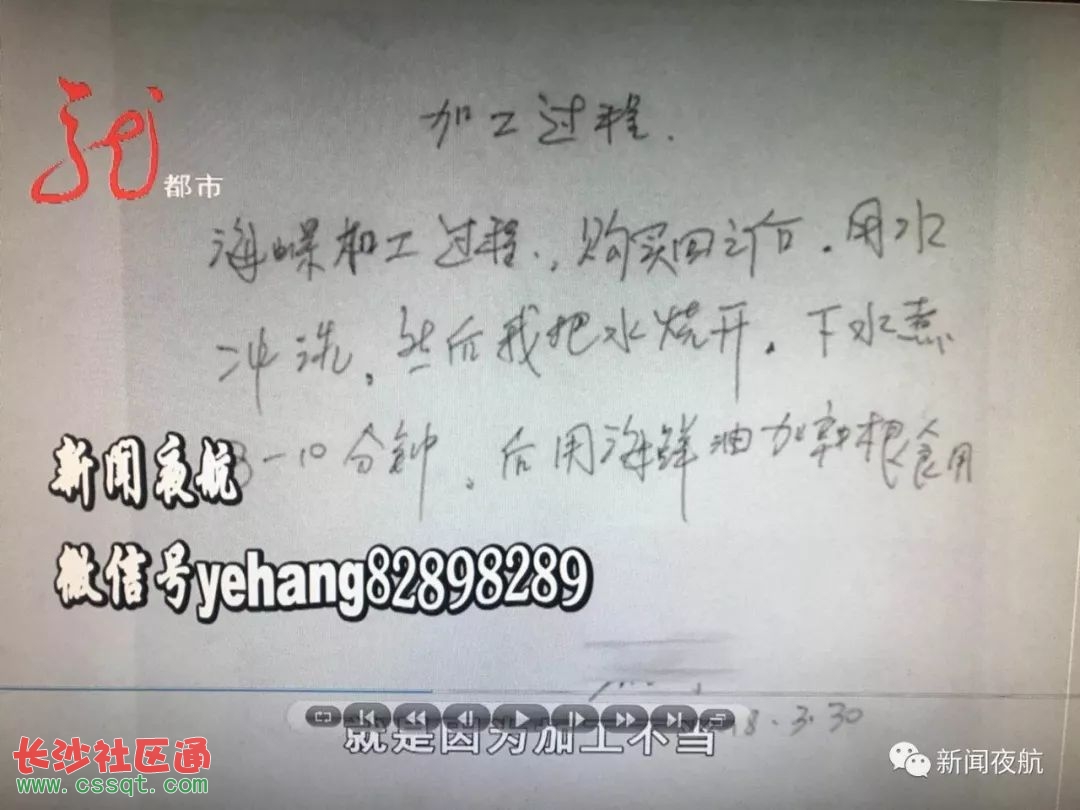 加工过程.
都市
海螺加工过程,购买回之后.用水
冲洗,然后我把水烧开.下水煮
8-10分钟,后用海鲜油加辣根食用
新闻夜航
微信号yehang82898289
8.3.30
就是因为加工不当
长沙社区通
www.cssqt.com
新闻夜航